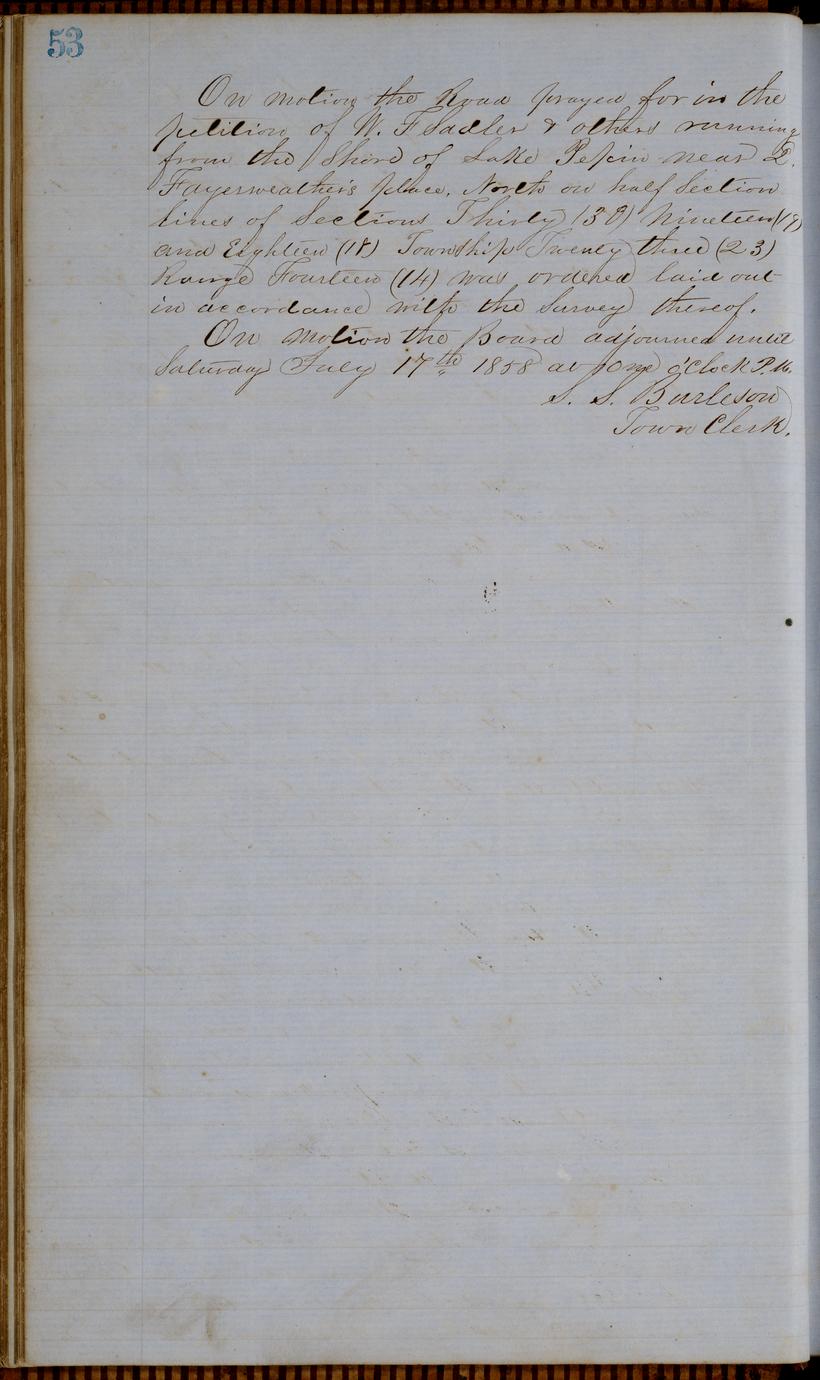 53
On motion the Road prayed for in the
petition of W. F Sadler & others running
from the Shore of Lake Pepin near D.
Fayerweather's place. North on half Section
lines of Sections Thirty (30) Nineteen (19)
and Eighteen (18) Township Twenty three (23)
Range Fourteen (14) was ordered laid out
in accordance with the Survey thereof.
On motion the Board adjourned until
Saturday July 17th 1858 at One o'Clock P.M.
S. S. Burleson
Town Clerk.